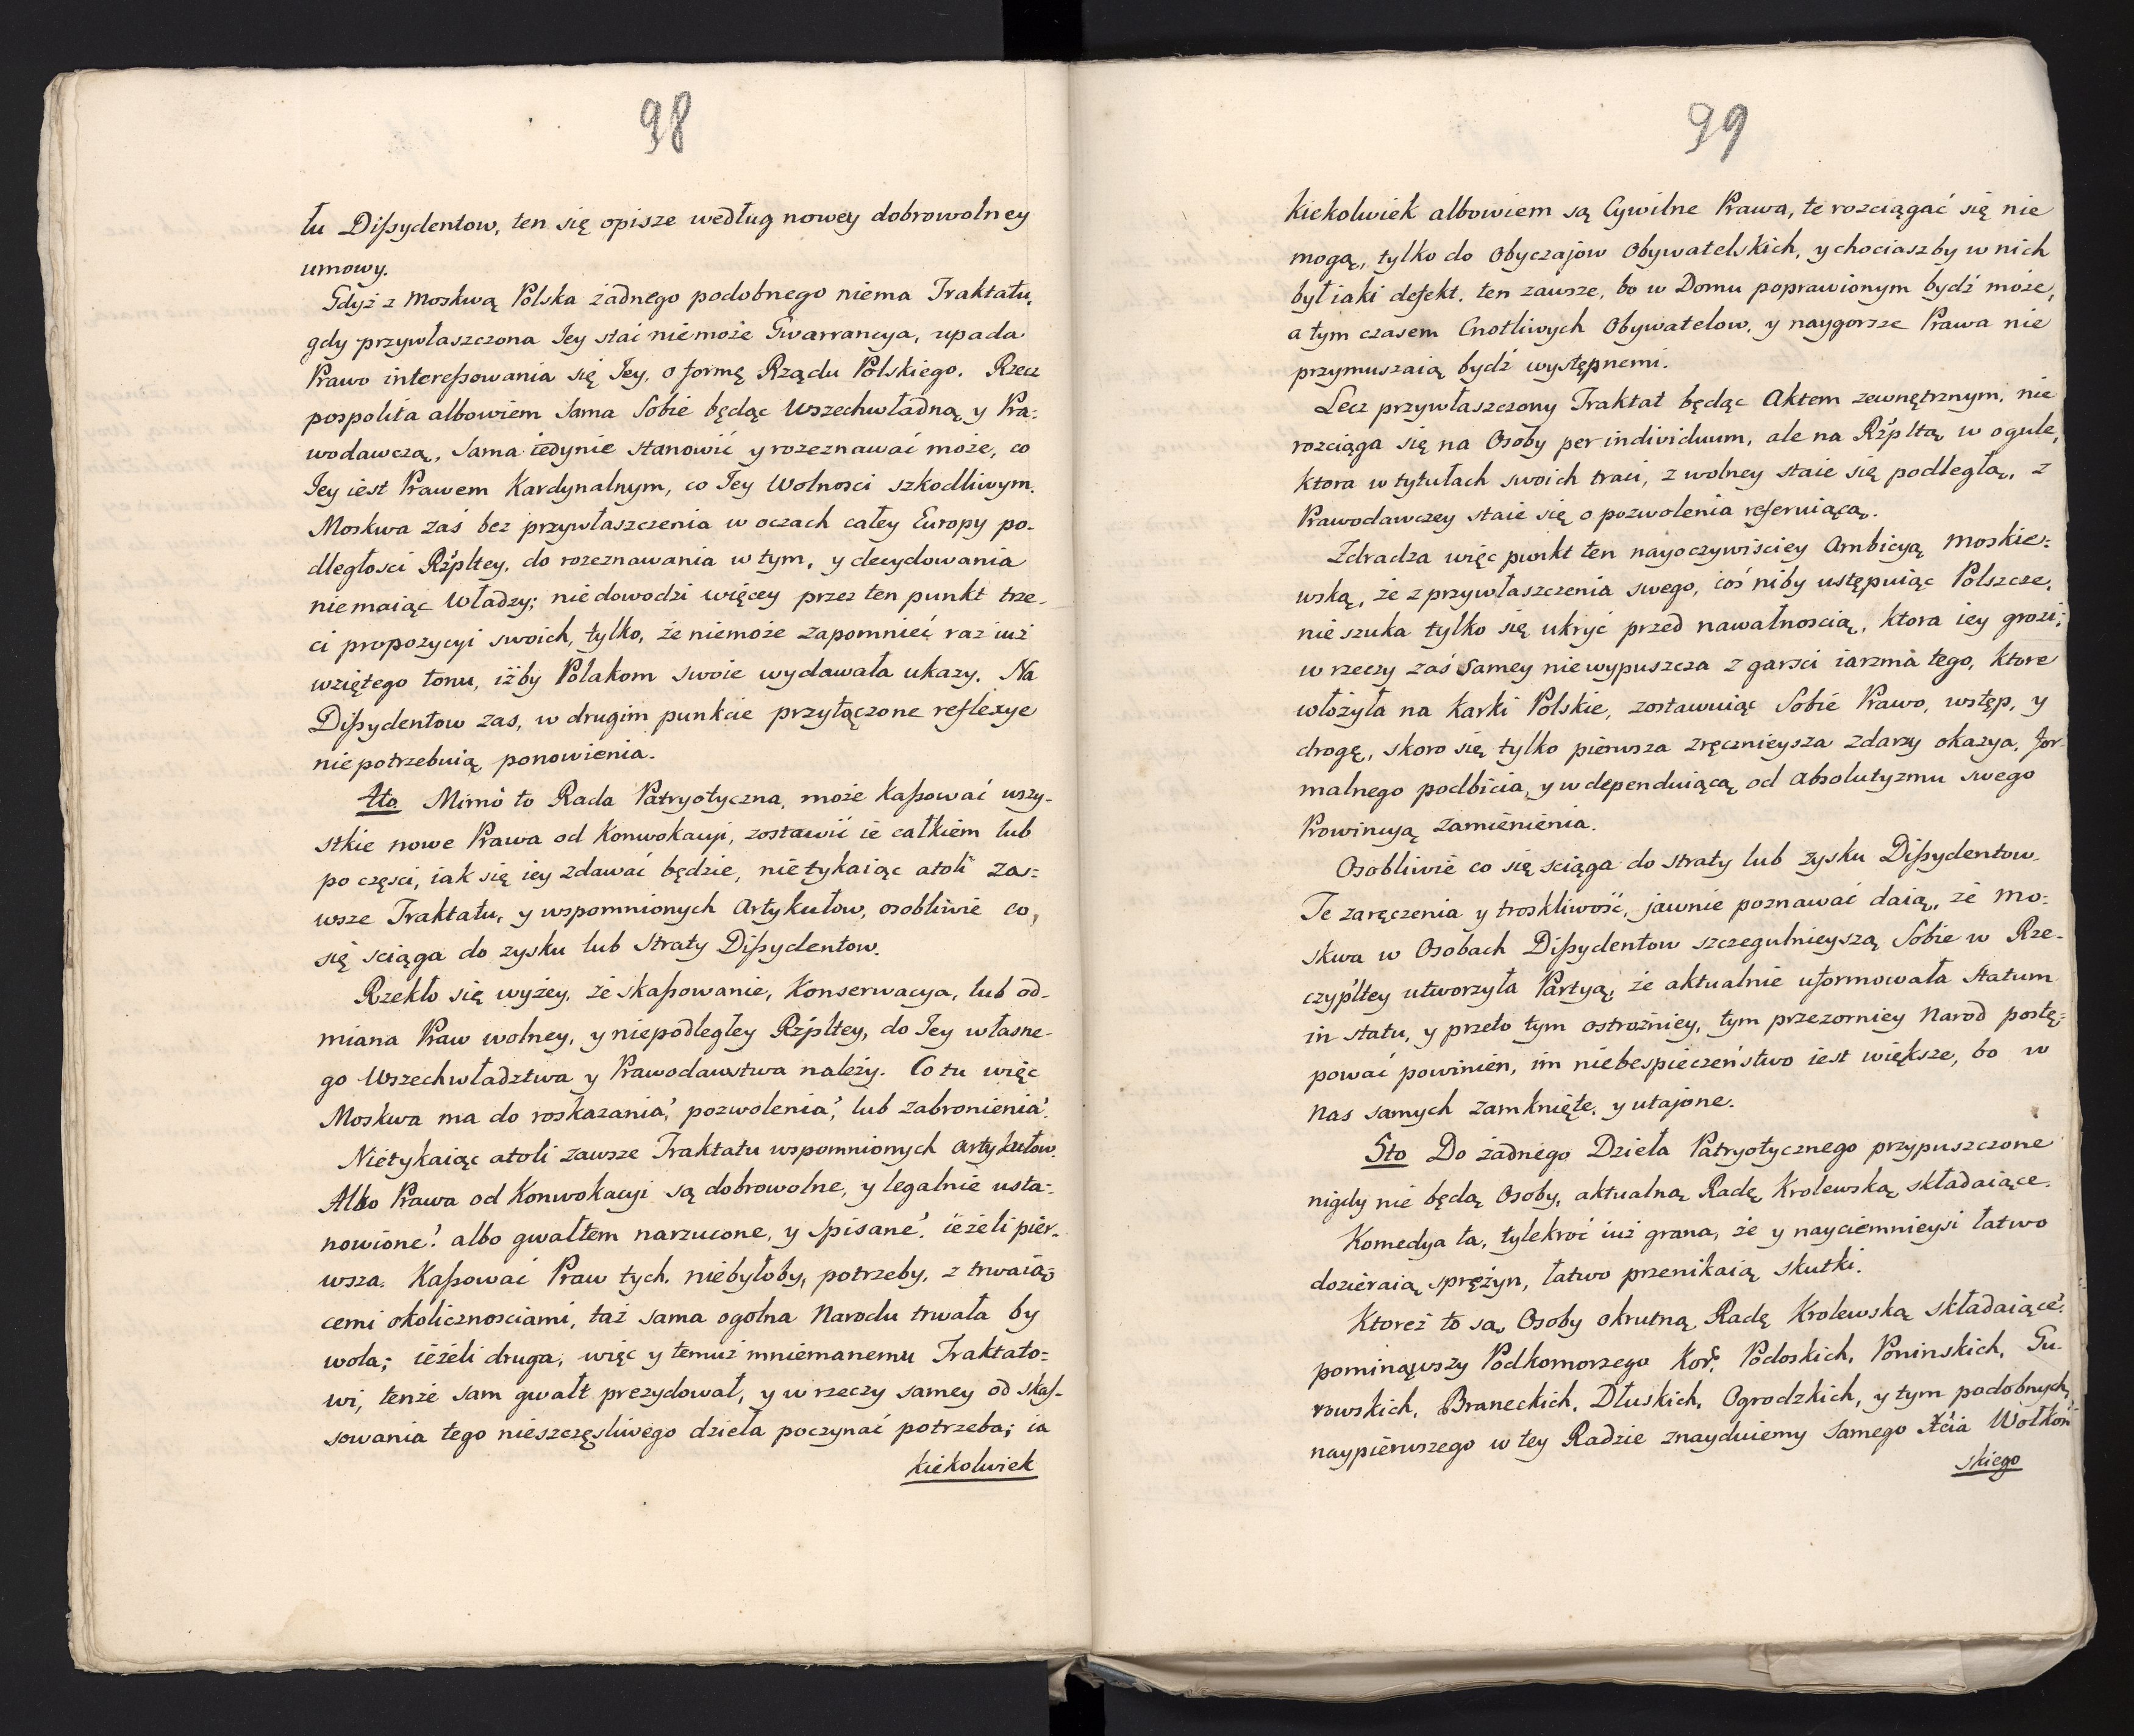 98
tu Dißydentow, ten się opisze według nowey dobrowolney
umowy.
Gdyż z Moskwą Polska żadnego podobnego niema Traktatu,
gdy przywłaszczona Jey stać niemoże Gwarrancya, upada
Prawo intereßowania się Jey, o formę Rządu Polskiego. Rzecz
pospolita albowiem Sama Sobie będąc Wszechwładną y Pra=
wodawczą, Sama iedynie stanowić y rozeznawać może, co
Jey iest Prawem Kardynalnym, co Jey Wolnosci szkodliwym.
Moskwa zaś bez przywłaszczenia w oczach całey Europy po-
dległosci Rżpltey, do rozeznawania w tym, y decydowania
niemaiąc Władzy; niedowodzi więcey przez ten punkt trze-
ci propozycyi swoich, tylko, że niemoże zapomnieć raz iuż
wziętego tonu, iżby Polakom swoie wydawała ukazy. Na
Dißydentow zas, w drugim punkcie przyłączone reflexye
niepotrzebuią ponowienia.
4to Mimo to Rada Patryotyczna, może kaßować wszy-
stkie nowe Prawa od Konwokacyi, zostawić ie całkiem lub
po częsci, iak się iey zdawać będzie, nietykaiąc atoli za=
wsze Traktatu, y wspomnionych Artykułow, osobliwie co,
się sciąga do zysku lub straty Dißydentow.
Rzekło się wyżey, że skaßowanie, Konserwacya, lub od-
miana Praw wolney, y niepodległey Rżpltey, do Jey własne-
go Wszechwładztwa y Prawodawstwa należy. Co tu więc
Moskwa ma do roskazania? pozwolenia? lub zabronienia?
Nietykaiąc atoli zawsze Traktatu wspomnionych Artykułow.
Albo Prawa od Konwokacyi są dobrowolne, y legalnie usta=
nowione? albo gwałtem narzucone, y spisane? ieżeli pier-
wsza. Kaßować Praw tych, niebyłoby, potrzeby, z trwaią=
cemi okolicznosciami, taż sama ogolna Narodu trwała by
wola; ieżeli druga, więc y temuż mniemanemu Traktato=
wi, tenże sam gwałt prezydował, y w rzeczy samey od skas-
sowania tego nieszczęsliwego dzieła poczynać potrzeba; ia
kiekolwiek
99
kiekolwiek albowiem są Cywilne Prawa, te rozciągać się nie
mogą, tylko do Obyczajow Obywatelskich, y chociaszby w nich
był iaki defekt, ten zawsze, bo w Domu poprawionym bydź może,
a tym czasem Cnotliwych Obywatelow, y naygorsze Prawa nie
przymuszaią bydź występnemi.
Lecz przywłaszczony Traktat będąc Aktem zewnętrznym, nie
rozciąga się na Osoby per individuum, ale na Rżpltą w ogule,
ktora w tytułach swoich traci, z wolney staie się podległą, z
Prawodawczey staie się o pozwolenia referuiącą.
Zdradza więc punkt ten nayoczywiściey Ambicyą Moskie=
wską, że z przywłaszczenia swego, coś niby ustępuiąc Polszcze,
nie szuka tylko się ukryć przed nawałnoscią, ktora iey grozi;
w rzeczy zaś samey niewypuszcza z garsci iarzma tego, ktore
włożyła na karki Polskie, zostawuiąc Sobie Prawo, wstęp, y
drogę, skoro się tylko pierwsza zręcznieysza zdarzy okazya, for-
malnego podbicia, y w dependuiącą od absolutyzmu swego
Prowincyą zamienienia.
Osobliwie co się sciąga do straty lub zysku Dißydentow.
Te zaręczenia y troskliwość, jawnie poznawać daią, że Mo=
skwa w Osobach Dißydentow szczegulnieyszą Sobie w Rze-
czypltey utworzyła Partyą, że aktualnie uformowała Statum
in statu, y przeto tym ostrożniey, tym przezorniey Narod postę=
pować powinien, im niebespieczeństwo iest większe, bo w
nas samych zamknięte, y utajone.
5to Do żadnego Dzieła Patryotycznego przypuszczone
nigdy nie będą Osoby, aktualną Radę Krolewską składaiące.
Komedya ta, tylekroć iuż grana, że y nayciemnieysi łatwo
dozieraią sprężyn, łatwo przenikaią skutki.
Ktoreż to są, Osoby okrutną Radę Krolewską składaiące?
pominąwszy Podkomorzego Kor. Podoskich, Poninskich, Gu-
rowskich, Braneckich, Dłuskich, Ogrodzkich, y tym podobnych,
naypierwszego w tey Radzie znayduiemy Samego Xćia Wołkoń
skiego